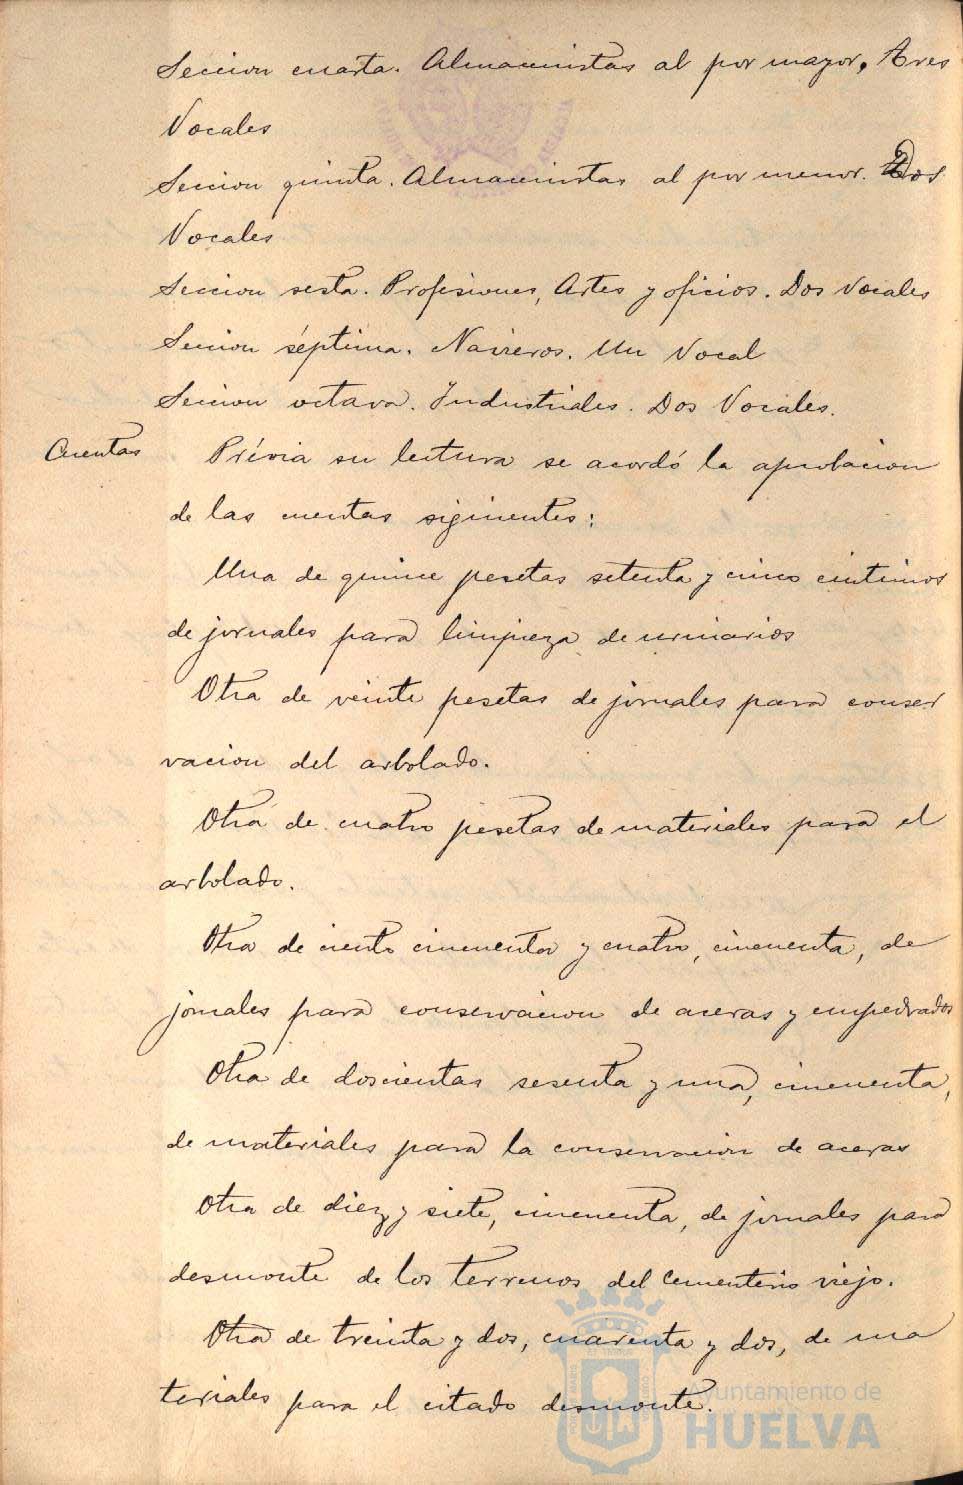 Seccion cuarta. Almacenistas al por mayor, Tres
Vocales
Seccion quinta. Almacenistas al por menor. Dos
Vocales
Seccion sesta. Profesiones, Artes y oficios. Dos Vocales
Seccion séptima. Navieros. Un Vocal
Seccion octava. Industriales. Dos Vocales.
Cuentas
Prévia su lectura se acordó la aprobacion
de las cuentas siguientes:
Una de quince pesetas setenta y cinco centimos
de jornales para limpieza de urinarios
Otra de veinte pesetas de jornales para conser
vacion del arbolado.
Otra de cuatro pesetas de materiales para el
arbolado.
Otra de ciento cincuenta y cuatro, cincuenta, de
jornales para conservacion de aceras y empedrados
Otra de doscientas sesenta y una, cincuenta,
de materiales para la conservacion de aceras
Otra de diez y siete, cincuenta, de jornales para
desmonte de los terrenos del Cementerio viejo.
Otra de treinta y dos, cuarenta y dos, de ma
teriales para el citado desmonte.
Ayuntamiento de
HUELVA